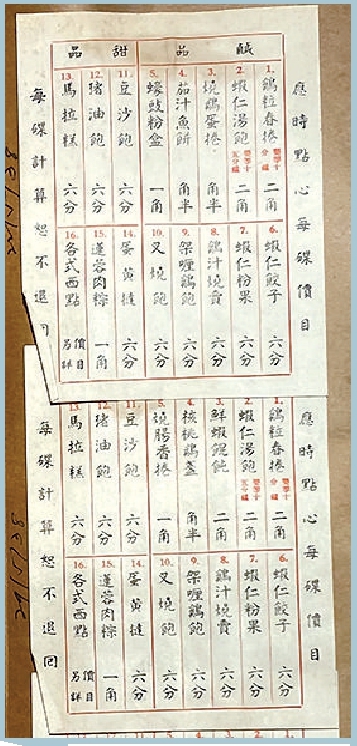 應時點心每碟價目
鹹品
1. 鷄粒春捲 二角
2. 蝦仁湯飽 二角
3. 燒鷄蛋捲 角半
4. 茄汁魚餅 角半
5. 蠔豉粉盒 一角
6. 蝦仁餃子 六分
7. 蝦仁粉果 六分
8. 鷄汁燒賣 六分
9. 架喱鷄飽 六分
10. 叉燒飽 六分
甜品
11. 豆沙飽 六分
12. 猪油飽 六分
13. 馬拉糕 六分
14. 蛋黄撻 六分
15. 蓮蓉肉粽 一角
16. 各式西點 價目另詳
每碟計算恕不退回
應時點心每碟價目
1. 鷄粒春捲 二角
2. 蝦仁湯飽 二角
3. 鮮蝦餛飩 二角
4. 核桃鷄盞 角半
5. 燒腸香捲 一角
6. 蝦仁餃子 六分
7. 蝦仁粉果 六分
8. 鷄汁燒賣 六分
9. 架喱鷄飽 六分
10. 叉燒飽 六分
11. 豆沙飽 六分
12. 猪油飽 六分
13. 馬拉糕 六分
14. 蛋黄撻 六分
15. 蓮蓉肉粽 一角
16. 各式西點 價目另詳
每碟計算恕不退回